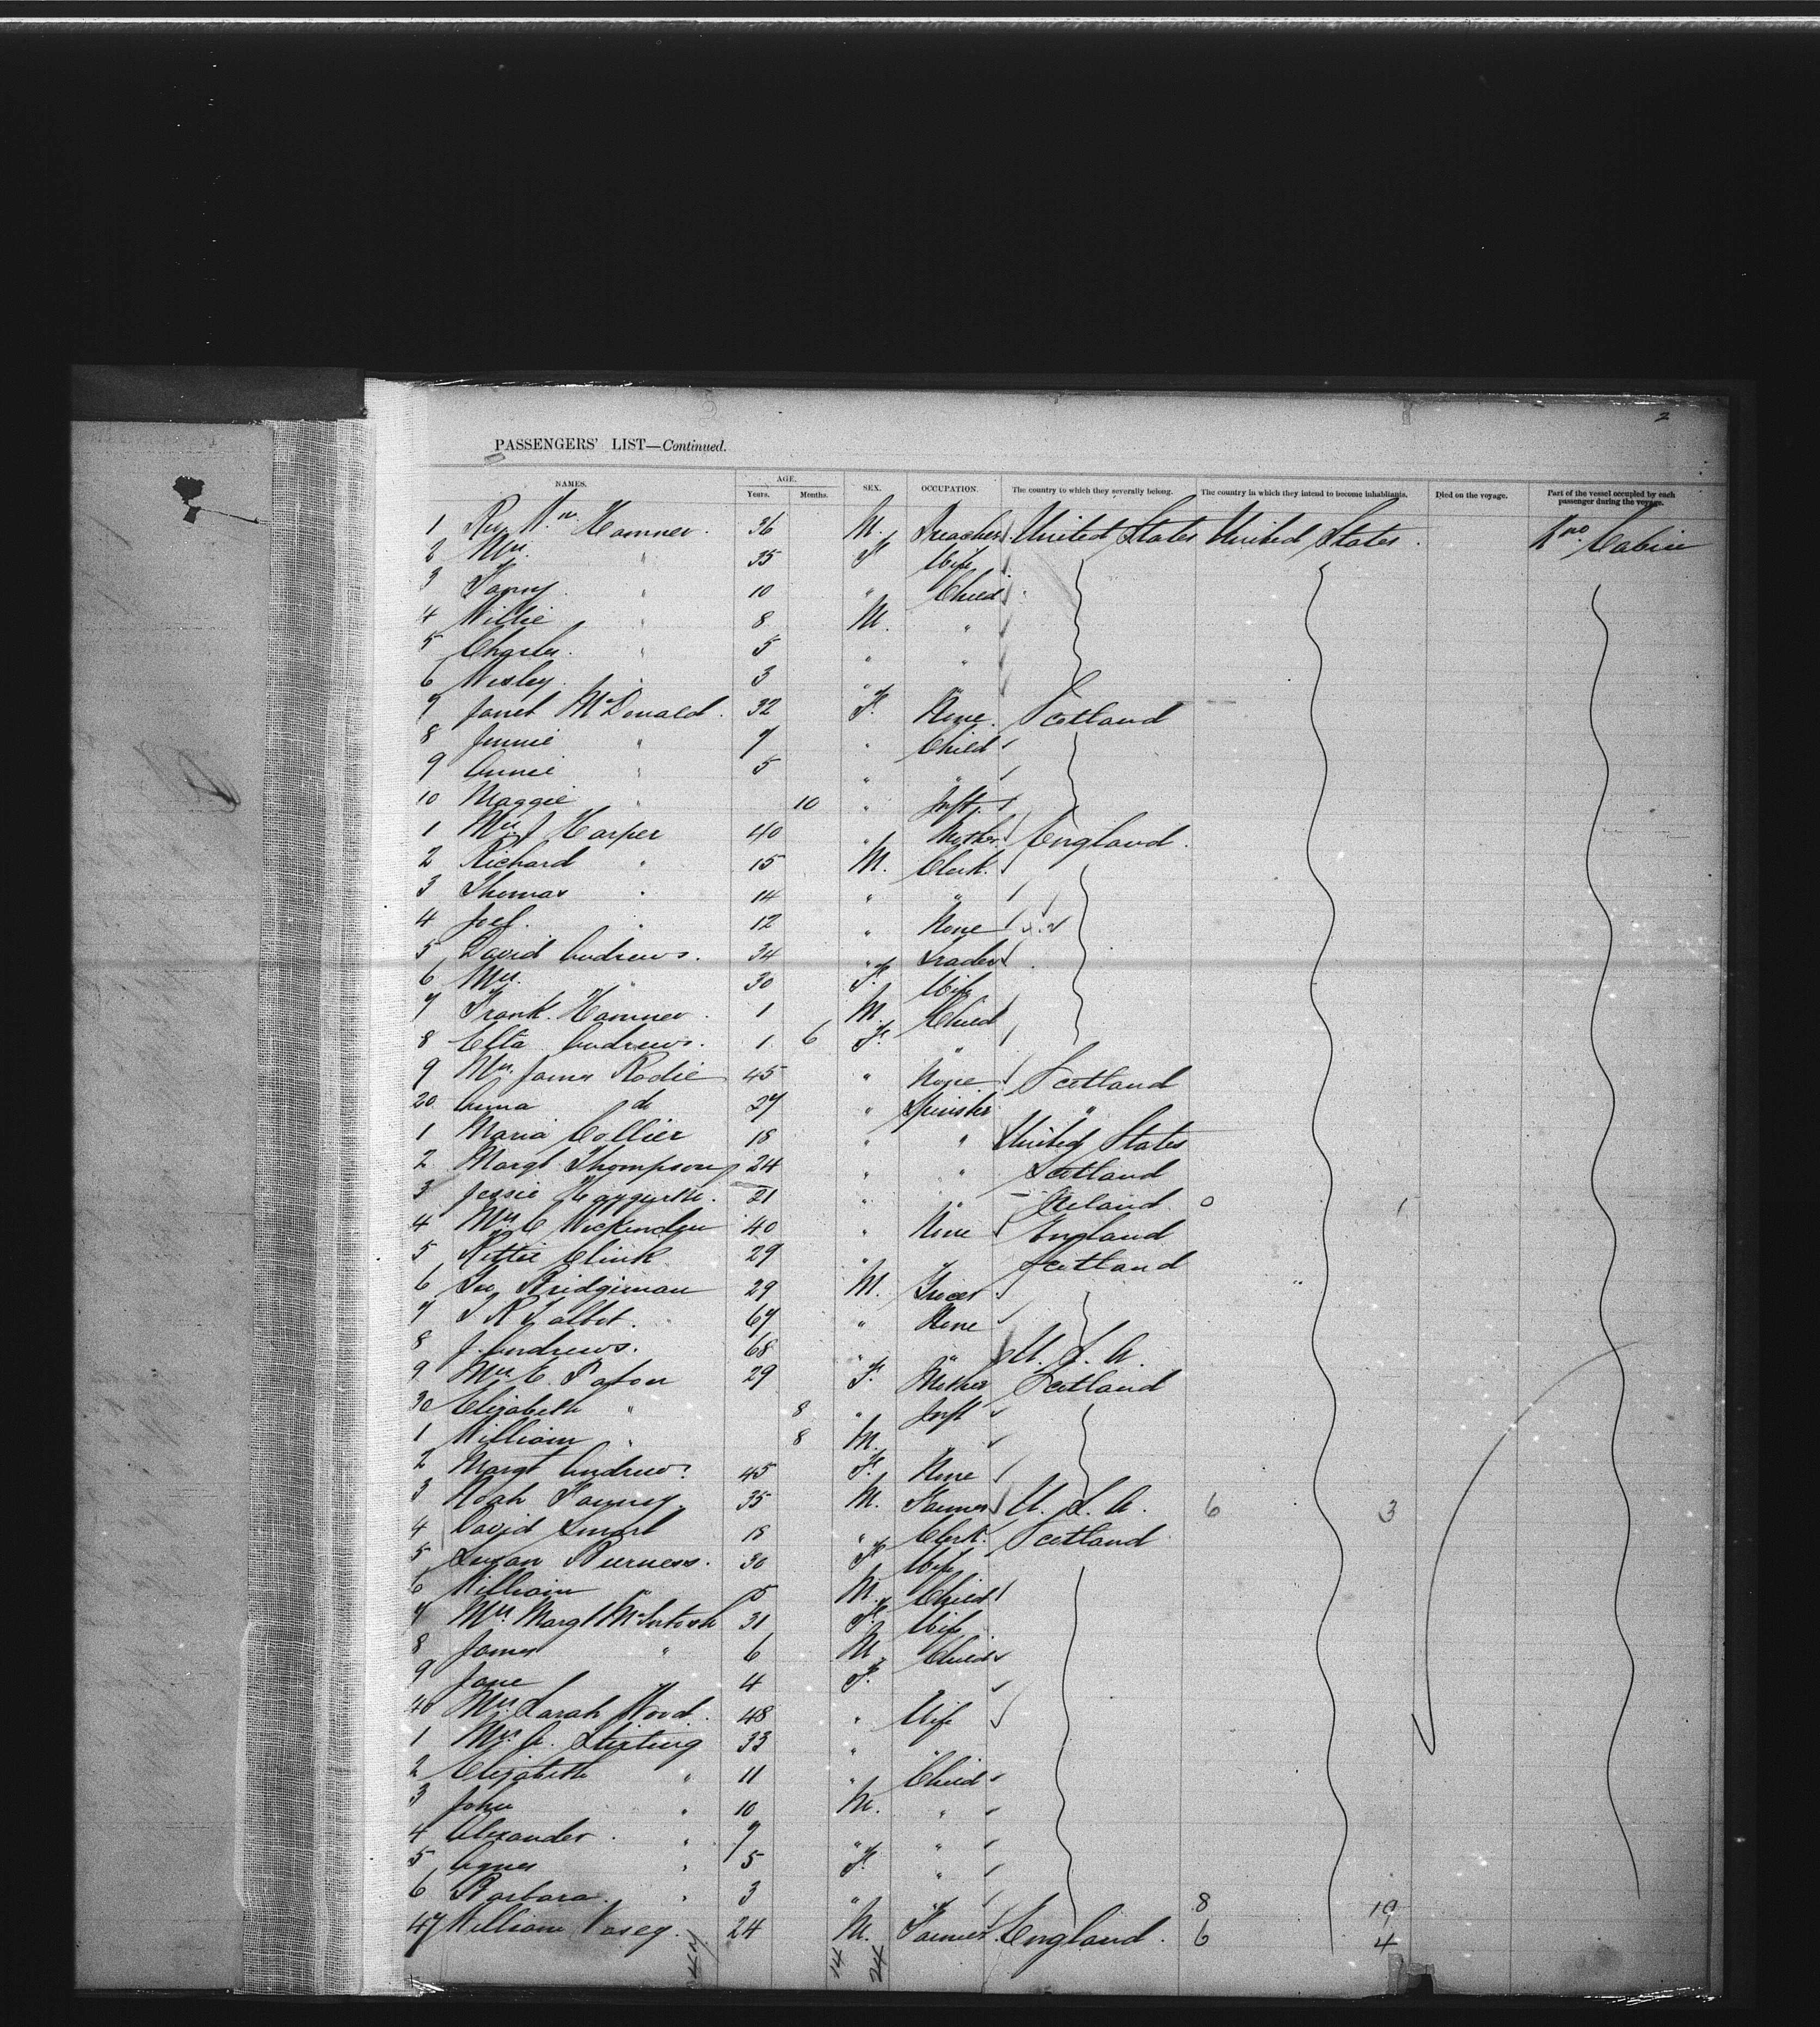 2
PASSENGERS' LIST—Continued.
NAMES. AGE. Years. Months. SEX. OCCUPATION. The country to which they severally belong. The country in which they intend to become inhabitants. Died on the voyage. Part of the vessel occupied by each passenger during the voyage.
1 Rev Wm Hamner. 36 M. Preacher United States United States. Cabin
2 Mrs. " 35 F Wife
3 Fanny " 10 " Child
4 Willie " 8 M. "
5 Charles. " 5 " "
6 Wesley. " 3 " "
7 Janet McDonald. 32 F. None. Scotland
8 Jennie " 7 " Child
9 Annie " 5 " "
10 Maggie " 10 " Inft
1 Mrs J Harper 40 " Mother England.
2 Richard " 15 M. Clerk.
3 Thomas " 14 " "
4 12 " None
5 David Andrews. 34 " Trader
6 Mrs. " 30 F. Wife
7 Frank. Hamner. 1 M. Child
8 Etta Andrews. 1 6 F. "
9 Mrs. James Rodie 45 " None Scotland
20 Anna do 27 " Spinster "
1 Maria Collier 18 " " United States
2 Margt Thompson 24 " " Scotland
3 Jessie 21 " " Ireland. 0 1
4 Mrs C 40 " None England
5 Clink 29 " " Scotland
6 Geo Bridgiman 29 M. Grocer
7 Talbot. 67 " None
8 J. Andrews. 68 " " U. S. A.
9 Mrs E. Paton 29 F. Mother Scotland
30 Elizabeth " 8 " Inft
1 William " 8 M. "
2 Margt Andrews. 45 F. None
3 Noah 35 M. Farmer U. S. A. 6 3
4 David Smart 18 " Clerk. Scotland
5 Susan Burness. 30 F Wife
6 William " 5 M. Child
7 Mrs. Margt McIntosh 31 F. Wife
8 James " 6 M. Child
9 Jane 4 F. "
40 Mrs Sarah Wood. 48 " Wife
1 Mrs A. Stirling 33 " "
2 Elizabeth " 11 " Child
3 John " 10 M. "
4 Alexander. " 7 " "
5 Agnes " 5 F. "
6 Barbara. " 3 " " 8 19
47 William Vasey. 24 M. Farmer England. 6 4
47 14 24